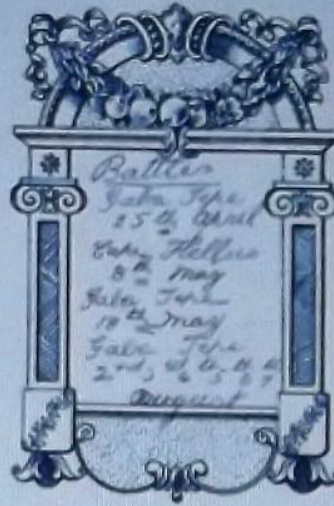 Battles
Gaba Tepe
25th April
Cape Hellus
8th May
Gaba Tepe
19th May
Gaba Tepe
2nd, 3rd, 4th, 5th, 6th, 7th
August